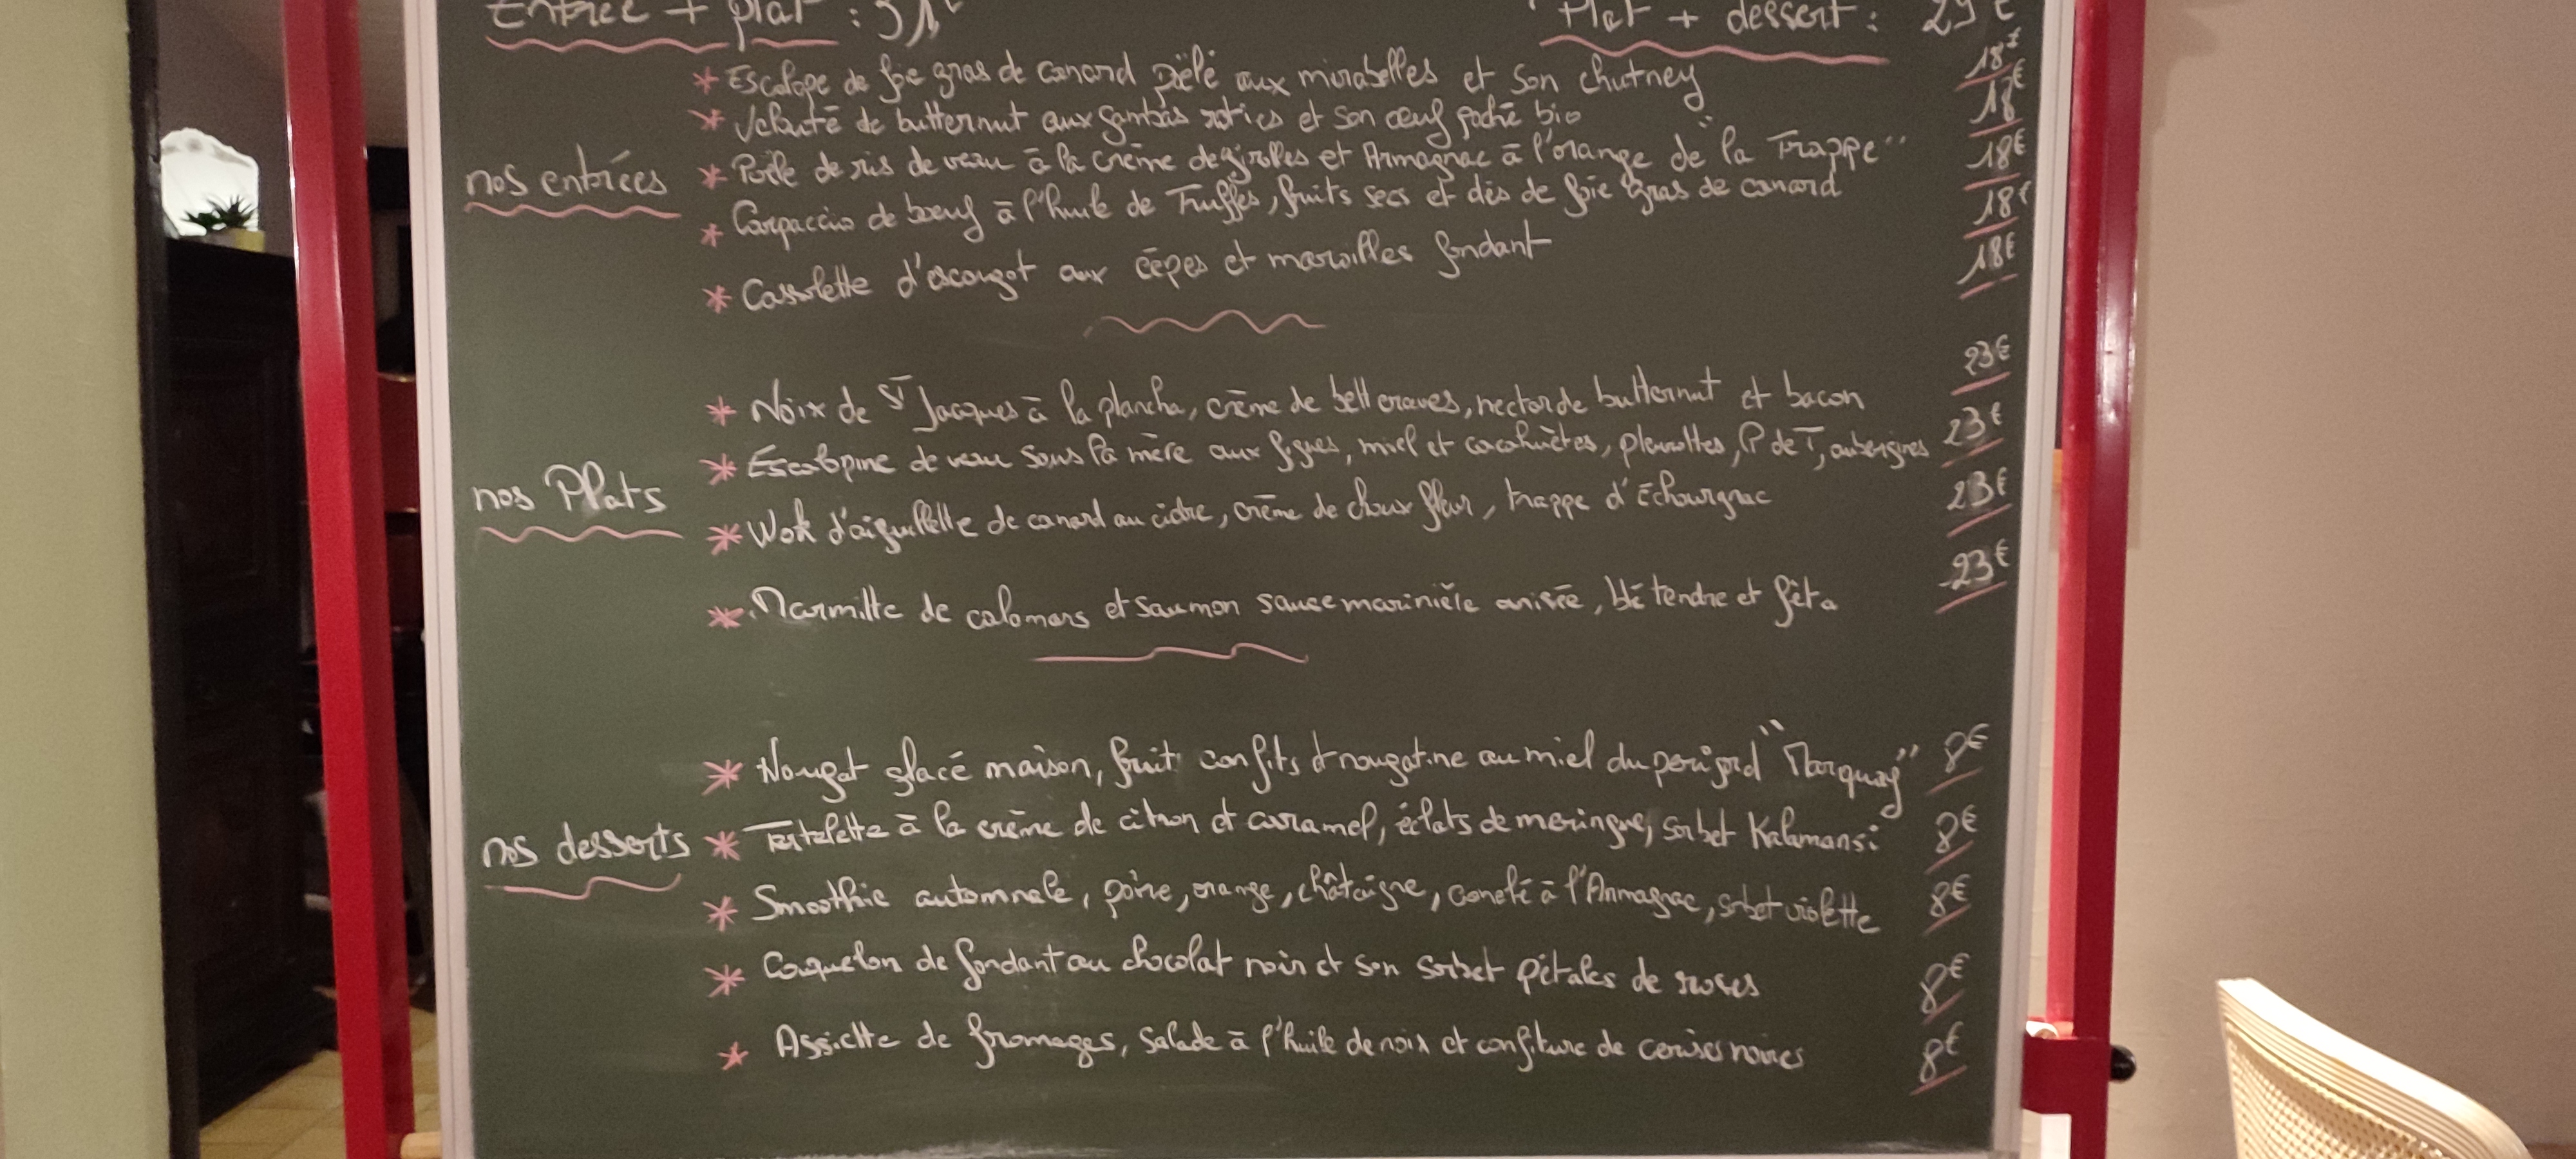 Entrée + plat : 31€
Plat + dessert : 29€
* Escalope de foie gras de canard poêlé aux mirabelles et son chutney 18€
* Velouté de butternut aux gambas roties et son oeuf poché bio 18€
nos entrées
* Poêle de ris de veau à la crème de girolles et Armagnac à l'orange de "la Trappe" 18€
* Carpaccio de boeuf à l'huile de Truffes, fruits secs et dés de foie gras de canard 18€
* Cassolette d'escargot aux cèpes et maroilles fondant 18€
* Noix de St Jacques à la plancha, crème de betteraves, nectar de butternut et bacon 23€
* Escalopine de veau sous la mère aux figues, miel et cacahuètes, pleurottes, P de T, aubergines 23€
nos Plats
* Wok d'aiguillette de canard au cidre, crème de choux fleur, trappe d'Echourgnac 23€
* Marmitte de calamars et saumon sauce marinière anisée, blé tendre et fêta 23€
* Nougat glacé maison, fruit confits & nougatine au miel du perigord "Marquay" 8€
nos desserts
* Tartelette à la crème de citron et caramel, éclats de meringue, sorbet Kalamansi 8€
* Smoothie automnale, poire, orange, châtaigne, canelé à l'Armagnac, sorbet violette 8€
* Coquelon de fondant au chocolat noir et son sorbet pétales de roses 8€
* Assiette de fromages, salade à l'huile de noix et confiture de cerises noires 8€